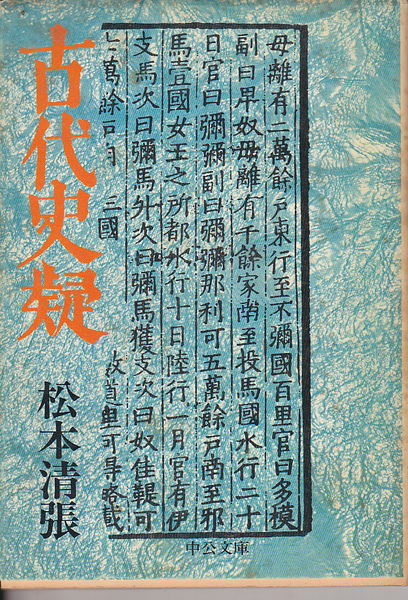 古代史疑
松本清張
母離有二萬餘戸東行至不彌國百里官曰多模
副曰卑奴母離有千餘家南至投馬國水行二十
日官曰彌彌副曰彌彌那利可五萬餘戸南至邪
馬壹國女王之所都水行十日陸行一月官有伊
支馬次曰彌馬升次曰彌馬獲支次曰奴佳鞮可
萬餘戸 國 道里可得略載
中公文庫